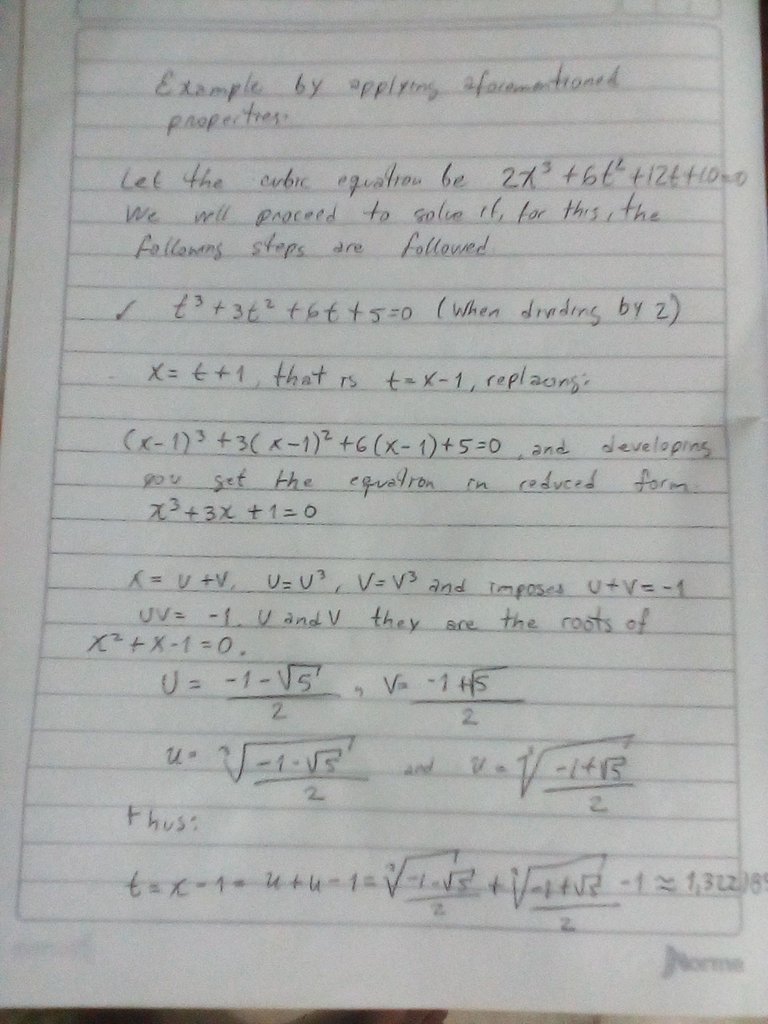 Example by applying aforementioned
properties.
Let the cubic equation be 2x³ + 6t² + 12t + 10 = 0
We will proceed to solve it, for this, the
following steps are followed
✓ t³ + 3t² + 6t + 5 = 0 (When dividing by 2)
x = t + 1, that is t = x - 1, replacing:
(x-1)³ + 3(x-1)² + 6(x-1) + 5 = 0, and developing
you get the equation in reduced form.
x³ + 3x + 1 = 0
x = u + v, U = U³, V = V³ and imposes U + V = -1
UV = -1. U and V they are the roots of
x² + x - 1 = 0.
U = (-1 - √5)/2, V = (-1 + √5)/2
u = ³√((-1 - √5)/2) and u = ³√((-1 + √5)/2)
thus:
t = x - 1 = u + u - 1 = ³√((-1 - √5)/2) + ³√((-1 + √5)/2) - 1 ≈ 1,32218
Norma